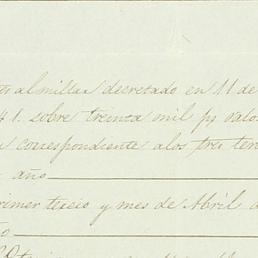 al millar decretado en 11 de
41. sobre treinta mil ps valor
correspondiente alos tres terc
año
primer tercio y mes de Abril d